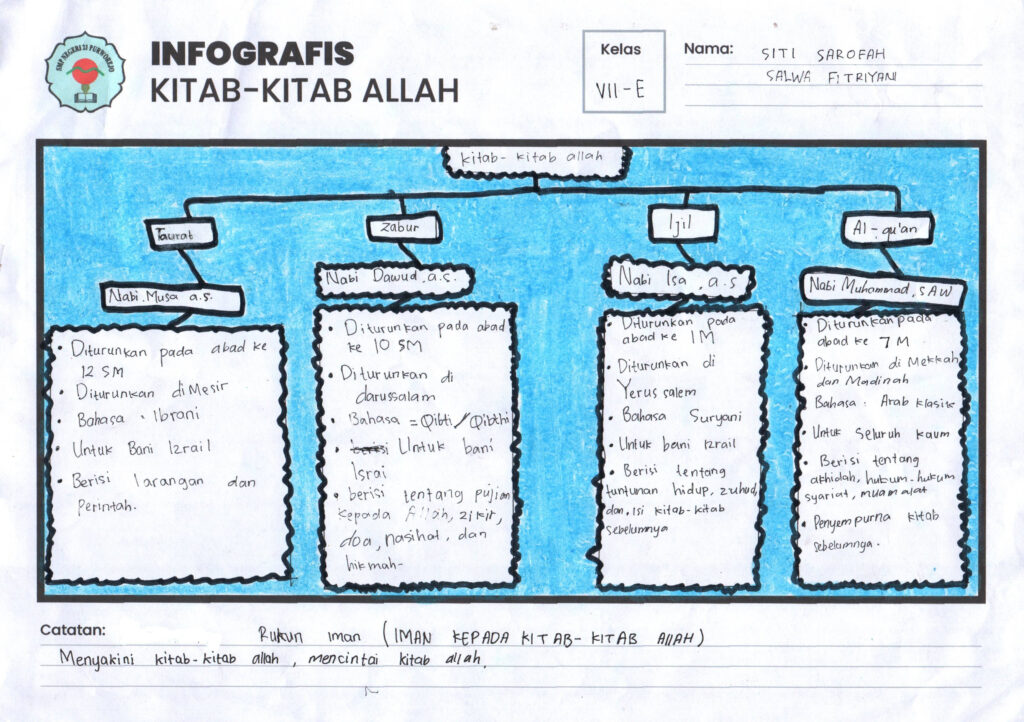 SMP NEGERI 31 PURWOREJO
INFOGRAFIS
KITAB-KITAB ALLAH
Kelas
VII-E
Nama:
SITI SAROFAH
SALWA FITRIYANI
kitab-kitab allah
Taurat
Nabi Musa a.s.
• Diturunkan pada abad ke
12 SM
• Diturunkan diMesir
• Bahasa : Ibrani
• Untuk Bani Izrail
• Berisi larangan dan
Perintah.
Zabur
Nabi Dawud, a.s.
• Diturunkan pada abad
ke 10 SM
• Diturunkan di
darussalam
• Bahasa = Qibti / Qibthi
• Untuk bani
Israi
• berisi tentang pujian
kepada Allah, zikir,
doa, nasihat, dan
hikmah-
Ijil
Nabi Isa, a.s
• Diturunkan pada
abad ke 1 M
• Diturunkan di
Yerussalem
• Bahasa Suryani
• Untuk bani Izrail
• Berisi tentang
tuntunan hidup, zuhud,
dan, isi kitab-kitab
sebelumnya
Al-qu'an
Nabi Muhammad, SAW
• Diturunkan pada
abad ke 7 M
• Diturunkan di Mekkah
dan Madinah
Bahasa : Arab klasik
• Untuk seluruh kaum
• Berisi tentang
akhidah, hukum-hukum
syariat, muamalat
• Penyempurna kitab
sebelumnya.
Catatan:
Rukun iman (IMAN KEPADA KITAB-KITAB AllAH)
Menyakini kitab-kitab allah, mencintai kitab allah.